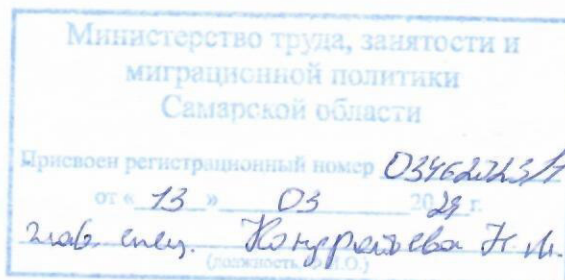 Министерство труда, занятости и
миграционной политики
Самарской области
Присвоен регистрационный номер
от « 13 » 03 2024 г.
глав. спец. Кондратьева Н.М.
(должность, Ф.И.О.)